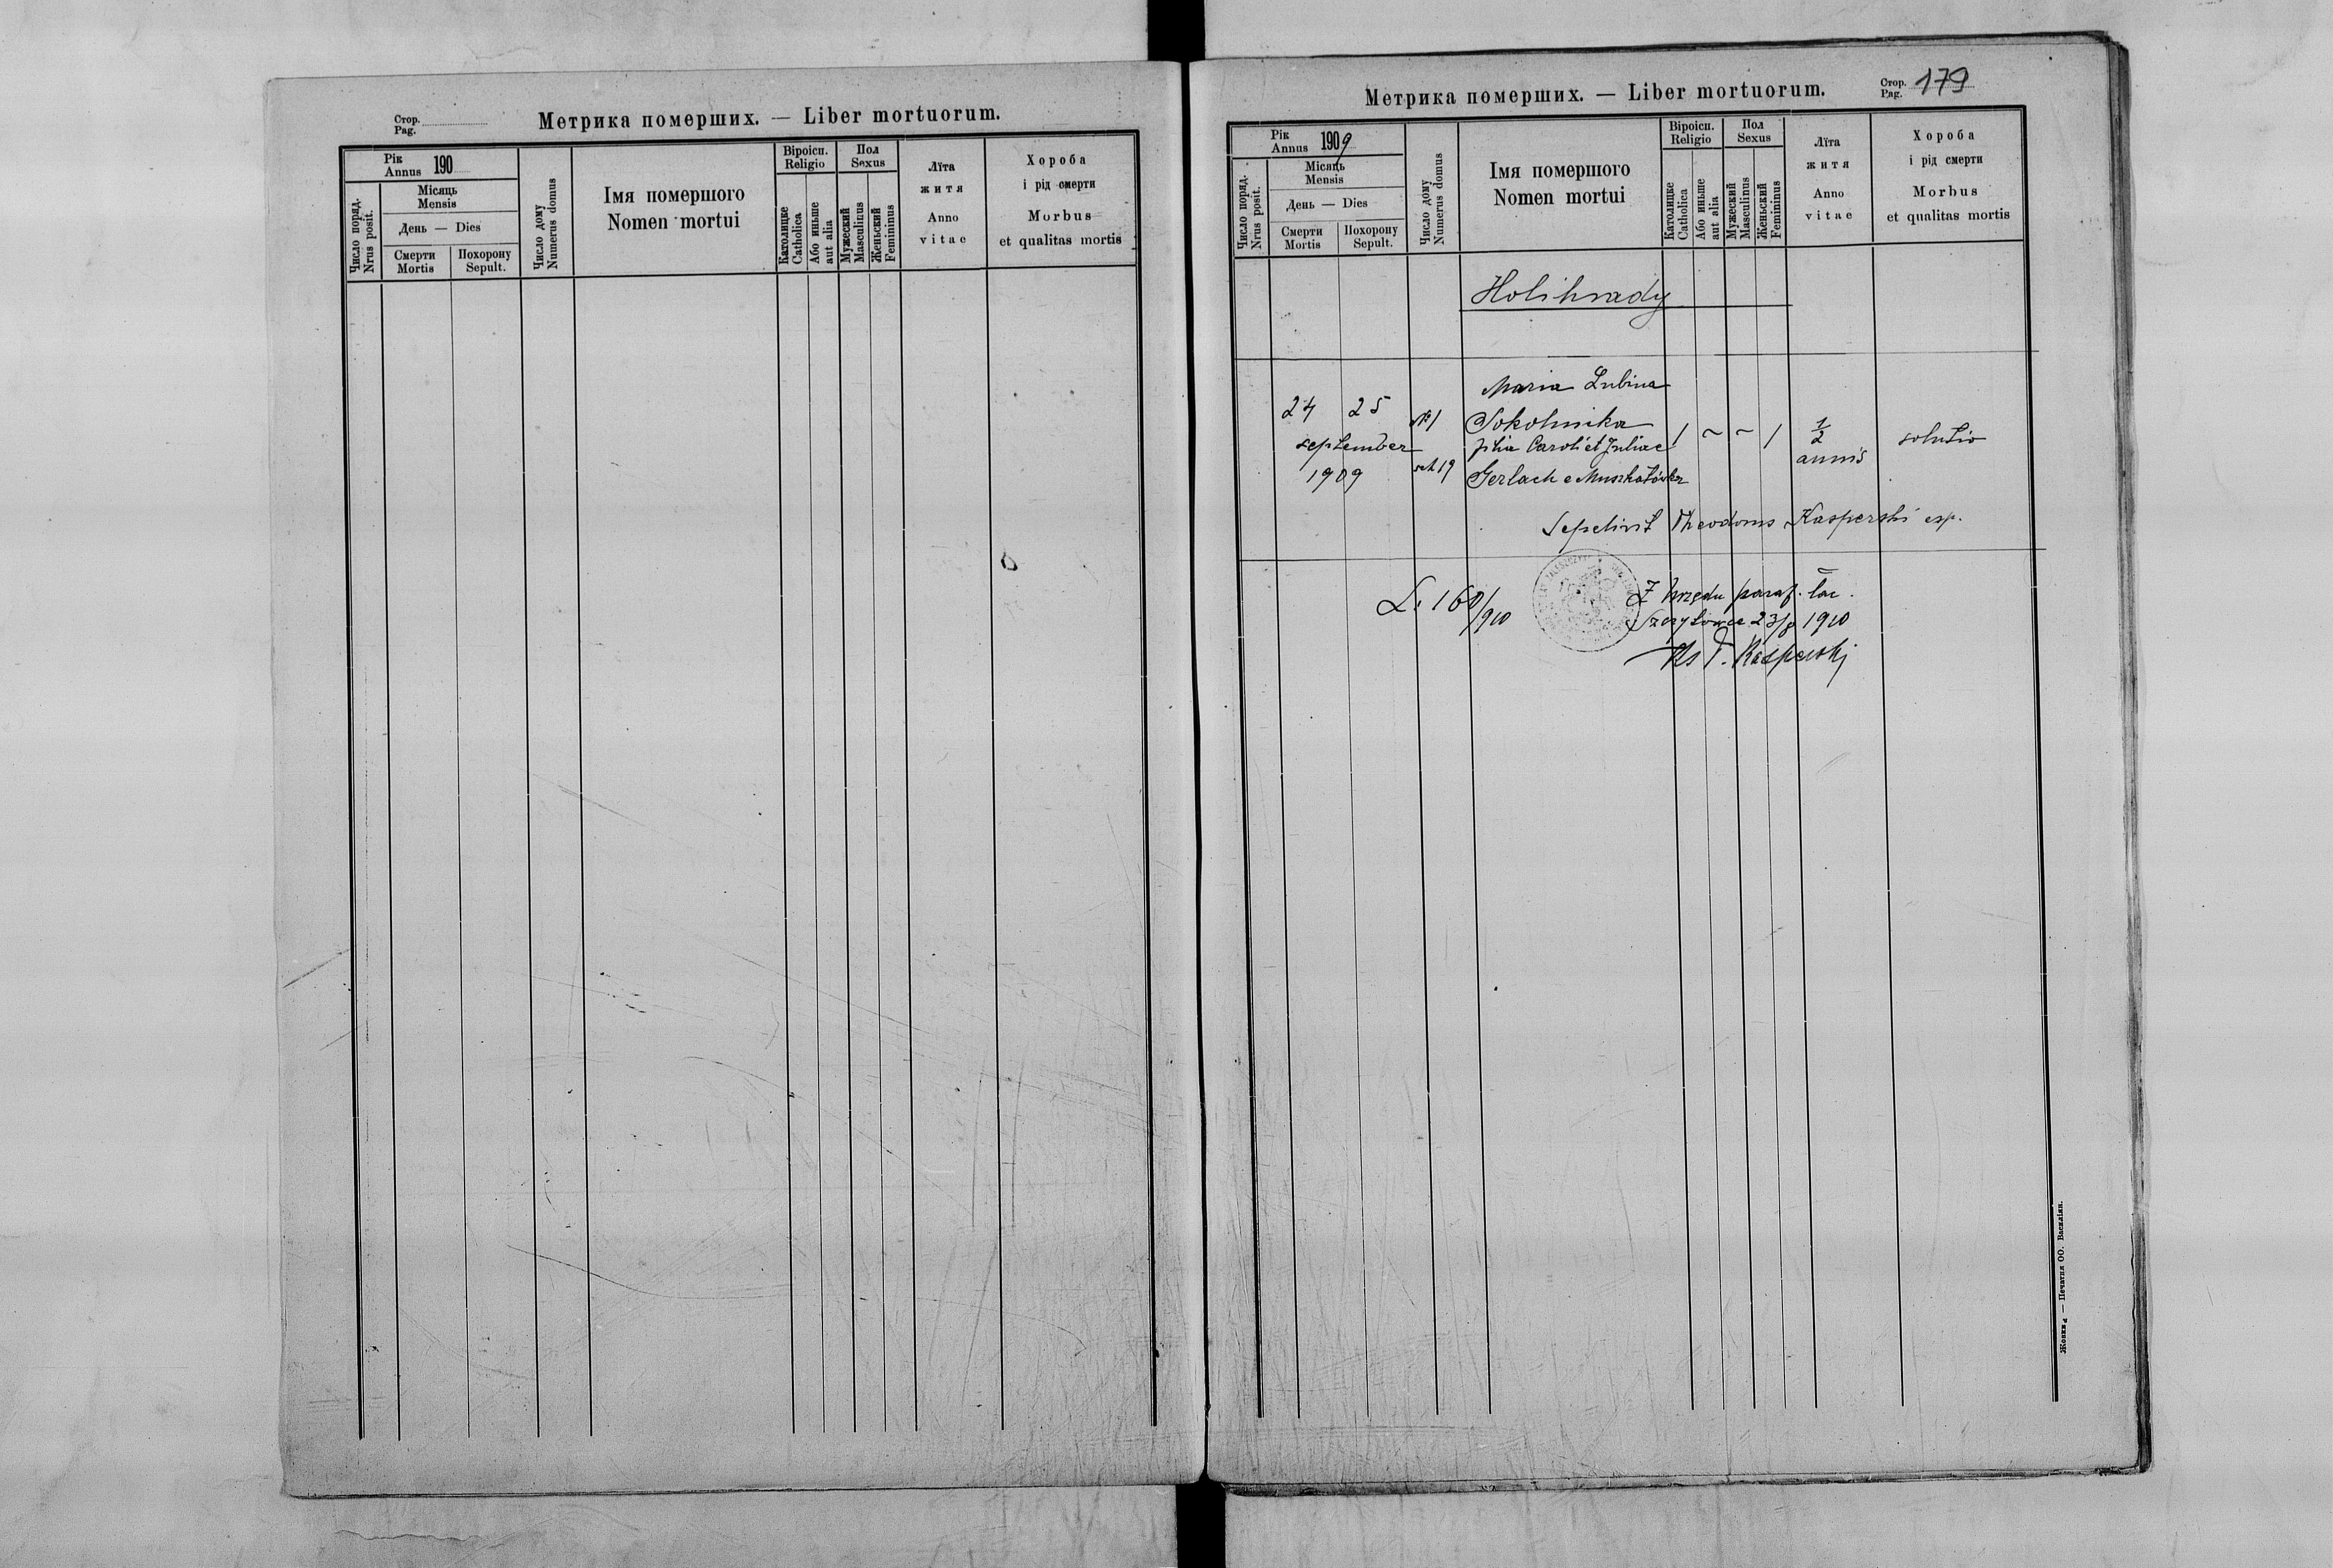 Стор.
Pag.
Метрика померших. — Liber mortuorum.
Рік
Annus 190
Число поряд.
Nrus posit.
Місяць
Mensis
День — Dies
Смерти
Mortis
Похорону
Sepult.
Число дому
Numerus domus
Імя помершого
Nomen mortui
Віроісп.
Religio
Католицке
Catholica
Або иньше
aut alia
Пол
Sexus
Мужеский
Masculinus
Женьский
Femininus
Лїта
житя
Anno
vitae
Хороба
і рід смерти
Morbus
et qualitas mortis
Метрика померших. — Liber mortuorum.
Стор.
Pag. 179
Рік
Annus 1909
Число поряд.
Nrus posit.
Місяць
Mensis
День — Dies
Смерти
Mortis
Похорону
Sepult.
Число дому
Numerus domus
Імя помершого
Nomen mortui
Віроісп.
Religio
Католицке
Catholica
Або иньше
aut alia
Пол
Sexus
Мужеский
Masculinus
Женьский
Femininus
Лїта
житя
Anno
vitae
Хороба
і рід смерти
Morbus
et qualitas mortis
Holihrady
Maria Lubina
24 25 № 1 Sokolnicka
september filia Caroli et Juliae 1 ~ ~ 1 ½ solutio
1909 19 Gerlach e Muszkatówka annis
Sepelivit Theodorus Kasperski exp.
L. 160/910
Z Urzędu paraf. łac.
Szczytowce 23/8 1910
Ks T. Kasperski
Жовква — Печатня ОО. Василіян.